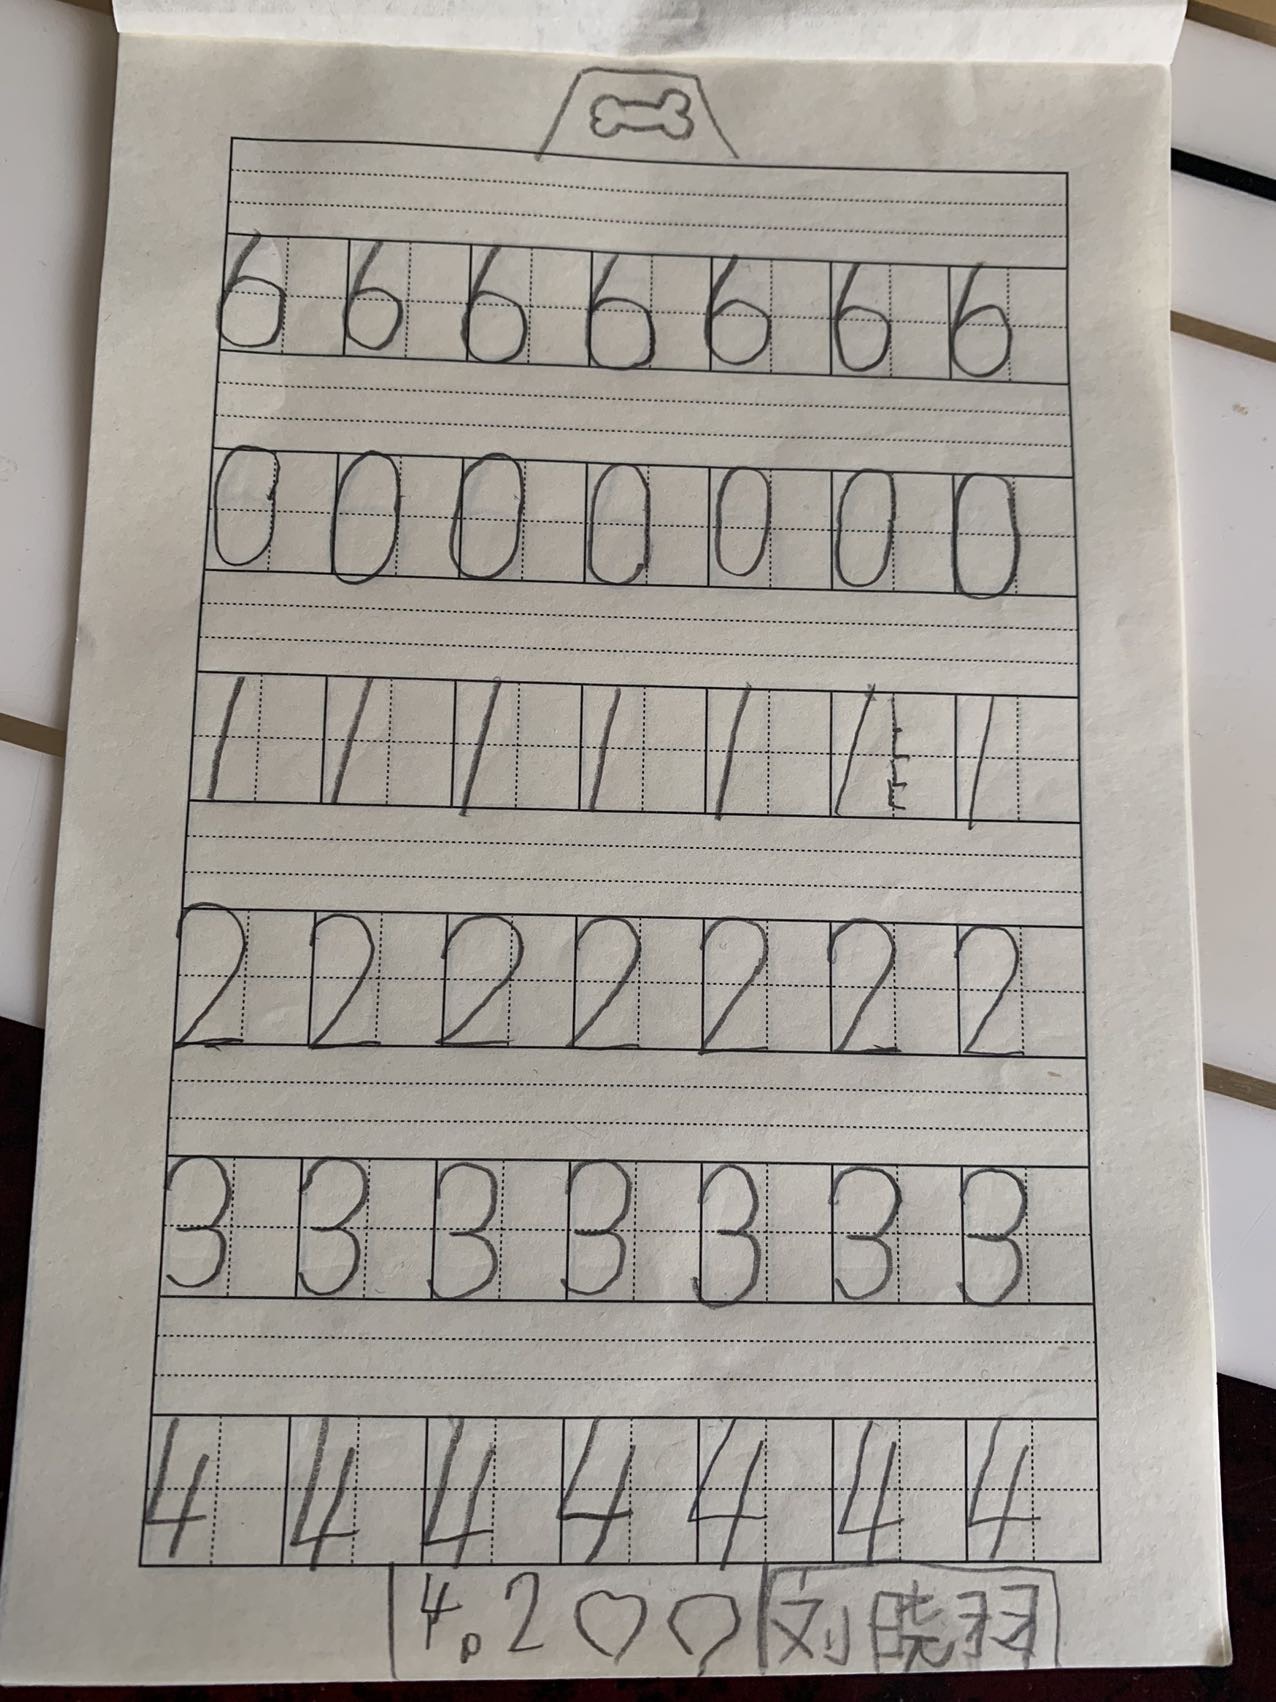 6 6 6 6 6 6 6
0 0 0 0 0 0 0
1 1 1 1 1 1 1
2 2 2 2 2 2 2
3 3 3 3 3 3 3
4 4 4 4 4 4 4
4.2 刘晓羽